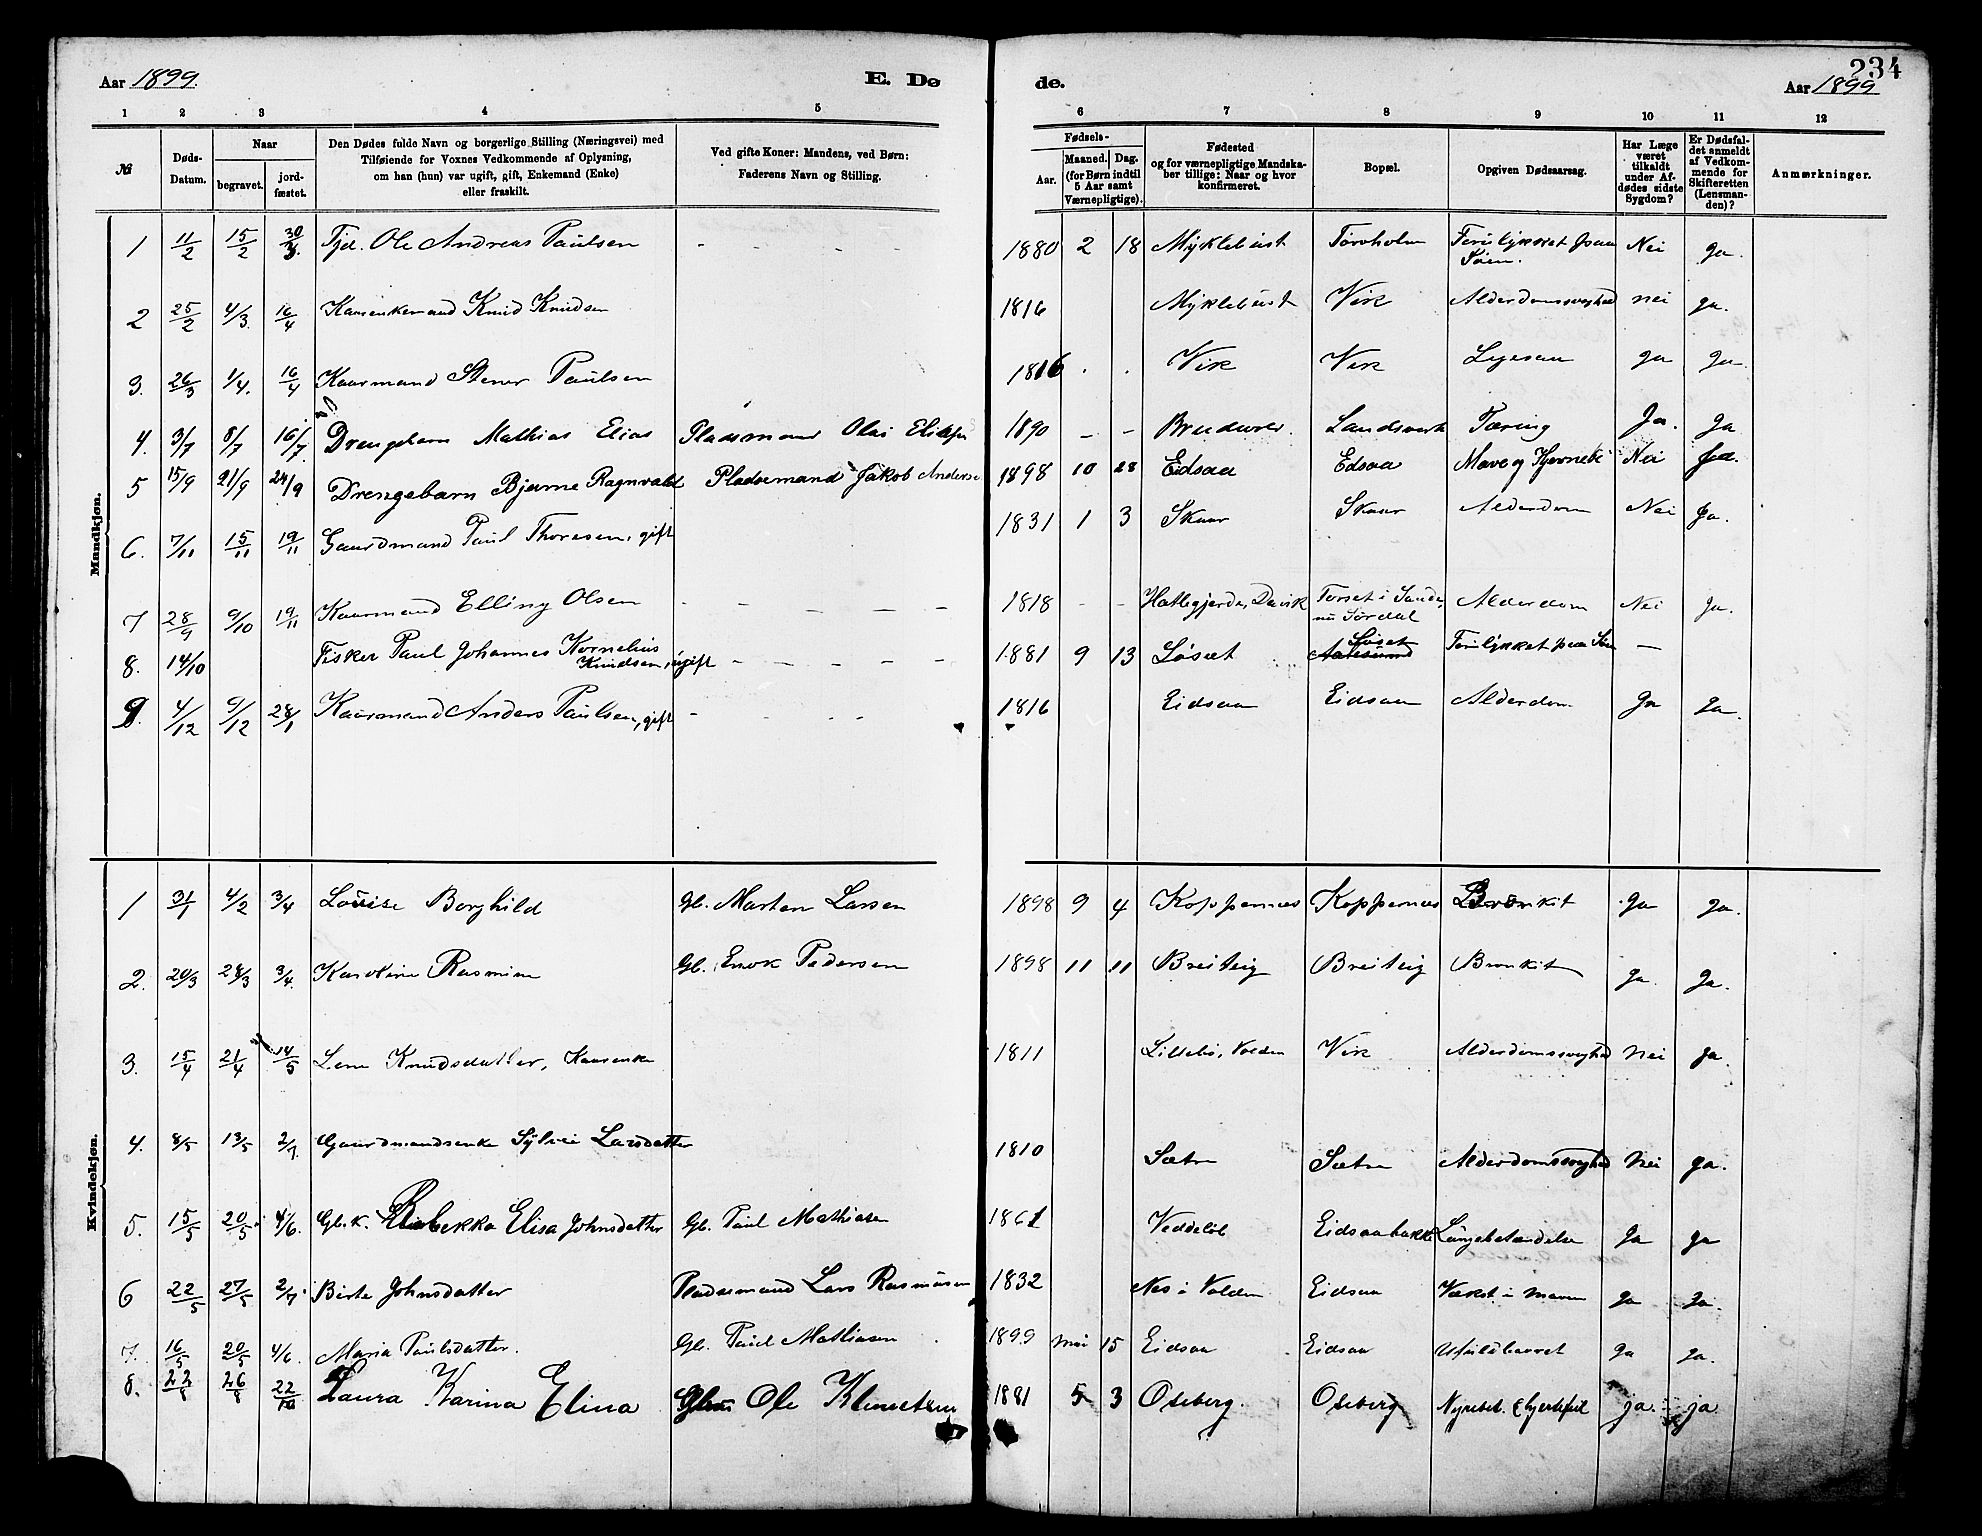 Aar 1899.
E. Dø
de.
234
Aar 1899
1 2 3 4 5 6 7 8 9 10 11 12
№
Døds-Datum.
Naar
begravet.
jord-fæstet.
Den Dødes fulde Navn og borgerlige Stilling (Næringsvei) med
Tilføiende for Voxnes Vedkommende af Oplysning,
om han (hun) var ugift, gift, Enkemand (Enke)
eller fraskilt.
Ved gifte Koner: Mandens, ved Børn:
Faderens Navn og Stilling.
Fødsels-
Aar.
Maaned. Dag.
(for Børn indtil
5 Aar samt
Værnepligtige).
Fødested
og for værnepligtige Mandska-
ber tillige: Naar og hvor
konfirmeret.
Bopæl.
Opgiven Dødsaarsag.
Har Læge
været
tilkaldt
under Af-
dødes sidste
Sygdom?
Er Dødsfal-
det anmeldt
af Vedkom-
mende for
Skifteretten
(Lensman-
den)?
Anmærkninger.
Mandkjøn.
1 11/2 15/2 Tjd. Ole Andreas Paulsen 1880 2 18 Myklebust Torvholm Forulykket paa Søen. Nei Ja.
2 25/2 4/3 16/4 Kaarenkemand Knud Knudsen 1816 Myklebust Vik Alderdomssvaghed nei ja.
3. 26/3 1/4. 16/4 Kaarmand Stener Paulsen 1816 Vik Vik ja ja
4. 3/7 8/7 16/7 Drengebarn Mathias Elias Pladsmand 1890 Ja. Ja
5 15/9 21/9 24/9 Drengebarn Bjarne Ragnvald Pladsemand Jakob Anderse 1898 10 28 Eidsaa Edsaa Nei Ja.
6. 7/11 15/11 19/11 Gaardmand Paul Thoresen, gift 1831 1 3 Skaar Skaar Alderdom Nei Ja.
7 28/9 9/10 19/11 Kaarmand Elling Olsen 1818 Hatlegjerde, Davik Torset i Sande, nu Sørdal Alderdom Nei Ja.
8. 14/10 Fisker Paul Johannes Kornelius Knudsen, ugift 1881 9 13 Løset Aalesund Løset Forulykket paa Søn
9. 4/12 9/12 28/1 Kaarmand Anders Paulsen, gift 1816 Eidsaa Eidsaa Alderdom Ja Ja.
Kvindekjøn.
1 31/1 4/2 3/4 Louise Borghild Gb. Marten Larsen 1898 9 4 Koppernæs Koppernæs Bronkit Ja Ja.
2. 20/3 28/3 3/4. Karoline Rasmine Gb. Enok Pedersen 1898 11 11 Breiteig Breiteig Bronkit Ja. Ja.
3. 15/4 21/4 14/5 Lene Knudsdatter, Kaarenke 1811 Lillebø, Volden Vik Alderdomssvaghed Nei Ja.
4. 8/5 13/5 2/7. Gaardmandsenke Sylvei Larsdatter 1810 Sætre Sætre Alderdomssvaghed Nei ja.
5. 15/5 20/5 4/6. Gb.k. Rebekka Elisa Johnsdatter Gb. Paul Mathiasen 1861 Eidsaabakke Lungebetændelse Ja ja
6 22/5 27/5 2/7. Birte Johnsdatter Pladsemand Lars Rasmusen 1832 Nes i Volden Eidsaa Vækst i maven Ja Ja.
7. 16/5 20/5 4/6. Maria Paulsdatter. Gb. Paul Mathiasen 1899 Mai 15 Eidsaa Eidsaa Ufuldbaaret Ja Ja.
8. 22/8 26/8 22/10 Laura Karina Elina Ole Klemetsen 1881 5 3 Oseberg. Oseberg Nyrebet. & hjertefeil ja. ja.